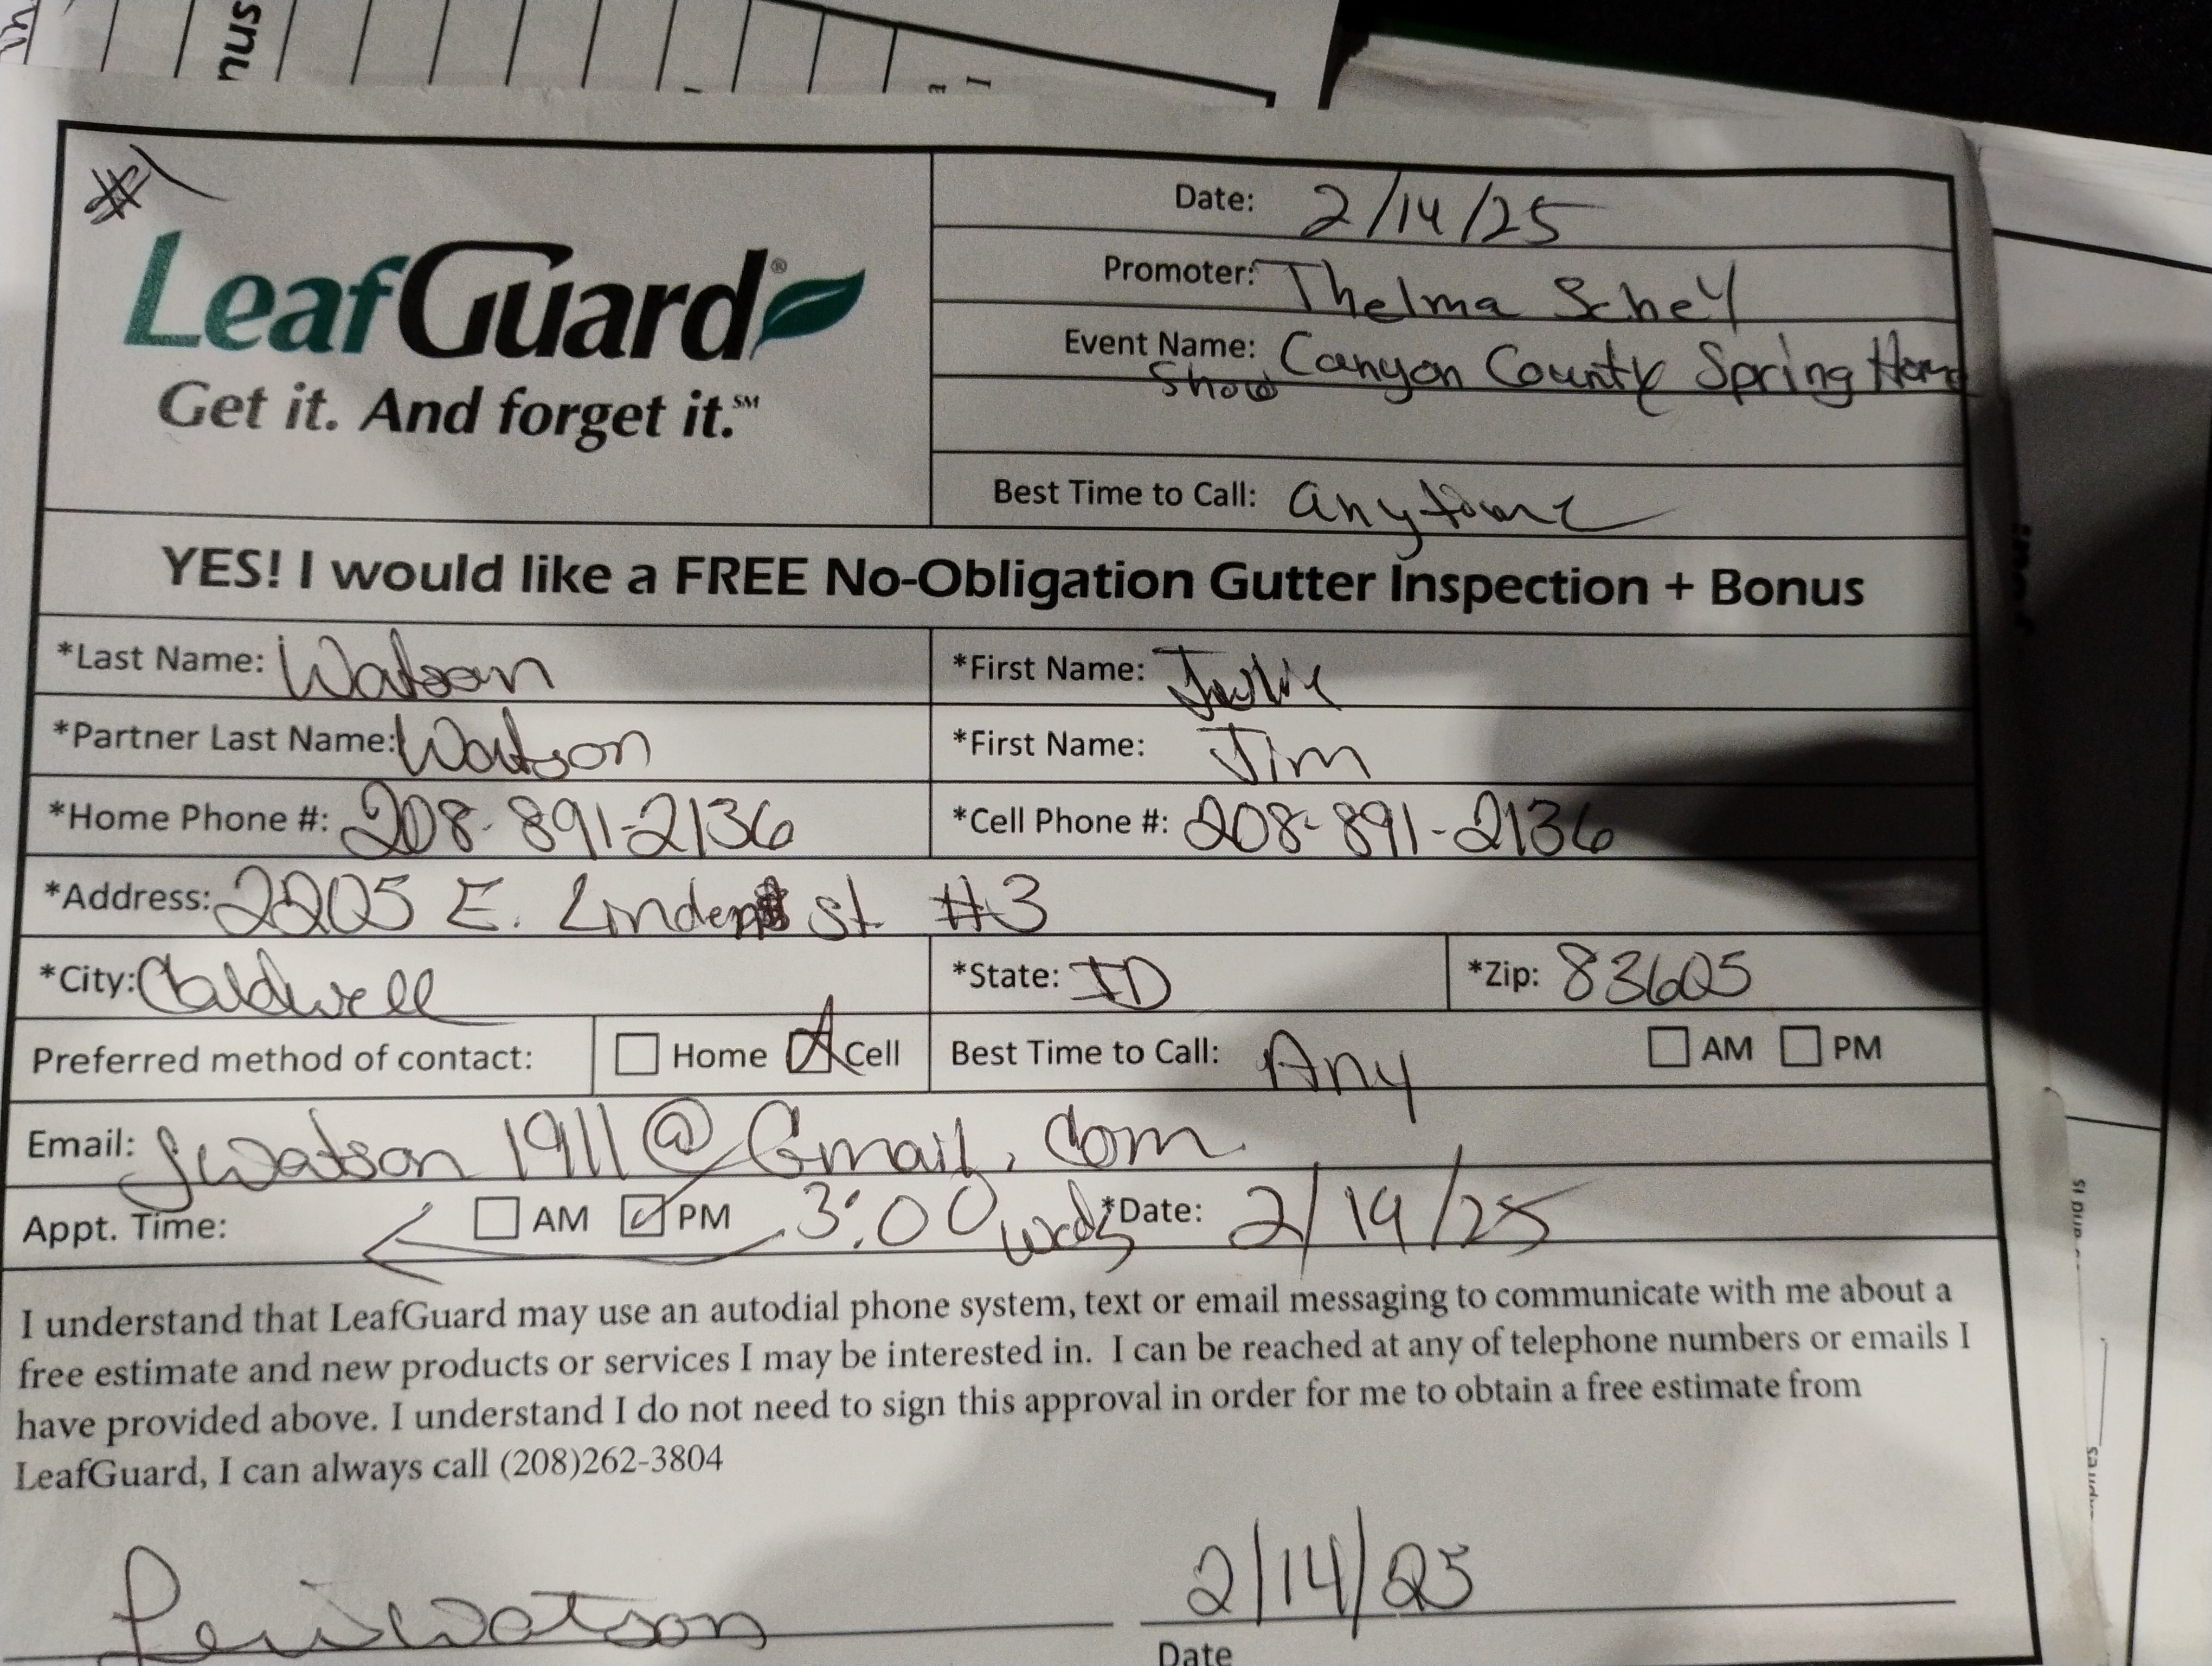 #1
LeafGuard®
Get it. And forget it.℠
Date: 2/14/25
Promoter: Thelma Schey
Event Name: Canyon County Spring Home
Show
Best Time to Call: anytime
YES! I would like a FREE No-Obligation Gutter Inspection + Bonus
*Last Name: Watson *First Name: Julie
*Partner Last Name: Watson *First Name: Jim
*Home Phone #: 208-891-2136 *Cell Phone #: 208-891-2136
*Address: 2205 E. Linden St. #3
*City: Caldwell *State: ID *Zip: 83605
Preferred method of contact: ☐ Home ☒ Cell Best Time to Call: Any ☐ AM ☐ PM
Email: Jwatson1911@Gmail.com
Appt. Time: ☐ AM ☑ PM 3:00 *Date: 2/19/25
I understand that LeafGuard may use an autodial phone system, text or email messaging to communicate with me about a
free estimate and new products or services I may be interested in. I can be reached at any of telephone numbers or emails I
have provided above. I understand I do not need to sign this approval in order for me to obtain a free estimate from
LeafGuard, I can always call (208)262-3804
2/14/25
Date
nus
and is